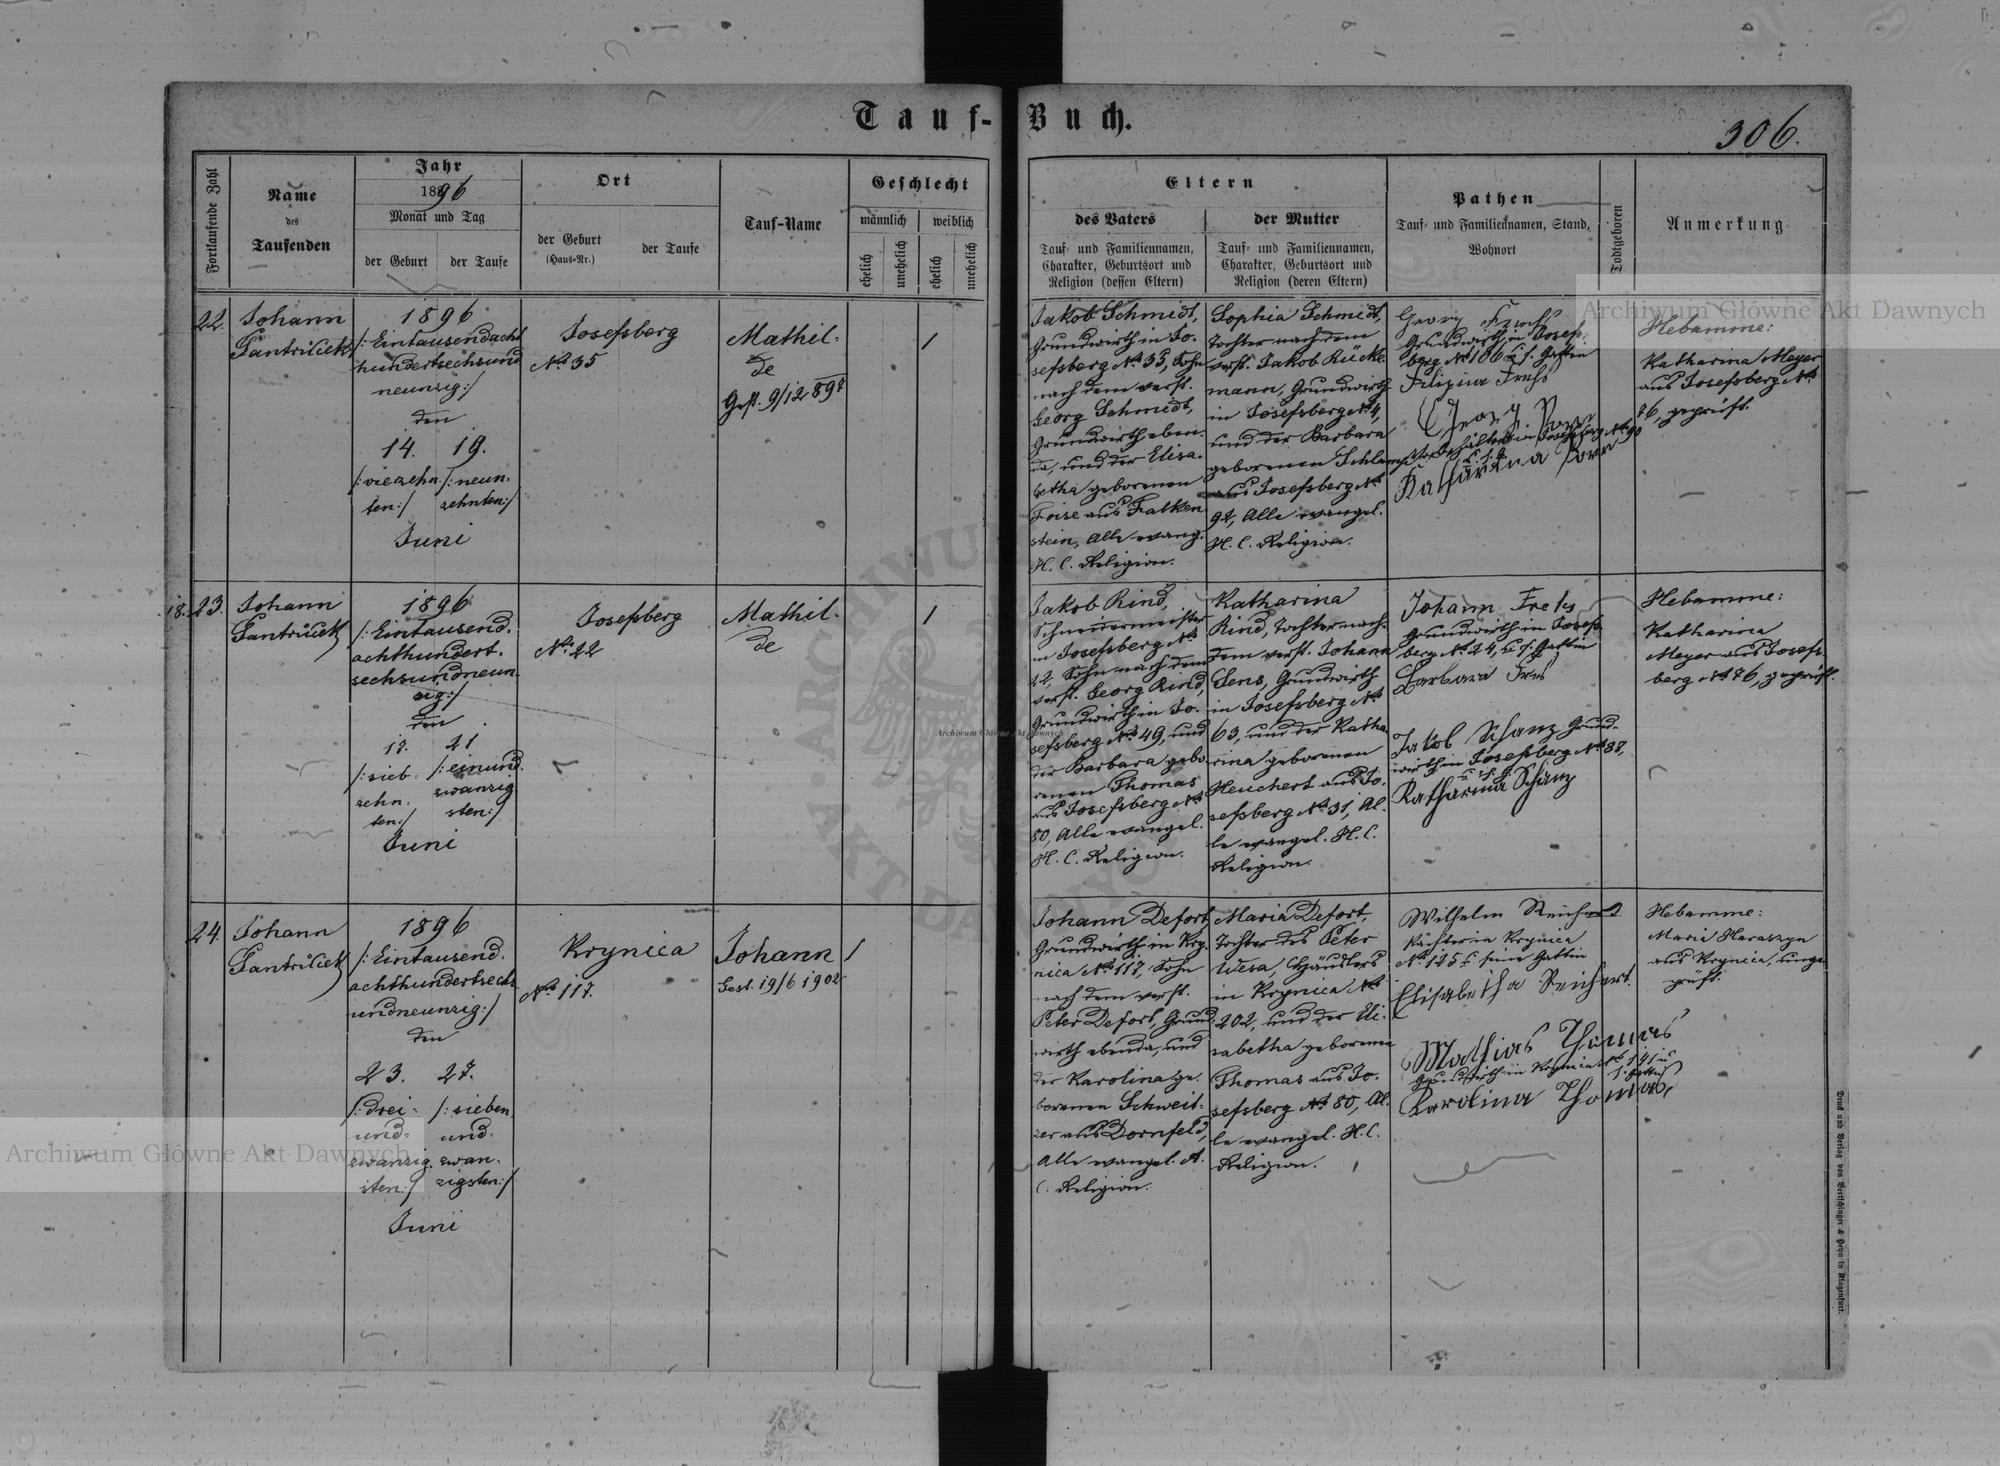 Tauf-Buch.
306.
Fortlaufende Zahl
Name
des
Taufenden
Jahr
1896
Monat und Tag
der Geburt
der Taufe
Ort
der Geburt
(Haus=Nr.)
der Taufe
Tauf=Name
Geschlecht
männlich
weiblich
ehelich
unehelich
ehelich
unehelich
Eltern
des Vaters
Tauf= und Familiennamen,
Charakter, Geburtsort und
Religion (dessen Eltern)
der Mutter
Tauf= und Familiennamen,
Charakter, Geburtsort und
Religion (deren Eltern)
Pathen
Tauf= und Familiennamen, Stand,
Wohnort
Todtgeboren
Anmerkung
22.
Johann
1896
/: Eintausendacht
hundertsechsund
neunzig :/
den
14. 19.
/: vierzehn /: neun-
ten :/ zehnten :/
Juni
Josefsberg
No 35
Mathil-
de
Gest. 9/12 897
/
Jakob Schmidt,
Grundwirth in Jo-
sefsberg No 35, Sohn
nach dem verst.
Georg Schmidt,
Grundwirth eben-
da, und der Elisa-
betha geborenen
aus Falken
stein, Alle evang.
H. C. Religion.
Sophia Schmidt,
Tochter nach dem
verst. Jakob Rücke
mann, Grundwirth
in Josefsberg No 4,
und der Barbara
geborenen
aus Josefsberg No
92, Alle evangel.
H. C. Religion.
Georg
Grundwirth in Josefs-
berg No 106 u s. Gattin
Georg
Katharina
Hebamme:
Katharina Meyer
aus Josefsberg No
76, geprüft.
18. 23.
Johann
1896
/: Eintausend-
achthundert-
sechsundneun-
zig :/
den
17. 21
/: sieb- /: einund-
zehn- zwanzig
ten :/ sten :/
Juni
Josefsberg
No 22
Mathil-
de
/
Jakob Rind,
Schneidermeister
in Josefsberg No
22, Sohn nach dem
verst. Georg Rind,
Grundwirth in Jo-
sefsberg No 49, und
der Barbara gebo-
renen Thomas
aus Josefsberg No
80, Alle evangel.
H. C. Religion.
Katharina
Rind, Tochter nach
dem verst. Johann
Sens, Grundwirth
in Josefsberg No
63, und der Katha
rina geborenen
Heuchert aus Jo-
sefsberg No 31, Al-
le evangel. H. C.
Religion.
Johann
Grundwirth in Josefs
berg No 24, u s. Gattin
Barbara
Jakob Schanz Grund-
wirth in Josefsberg No 88,
Katharina Schanz
Hebamme:
Katharina
Meyer aus Josefs
berg No 76, geprüft.
24.
Johann
1896
/: Eintausend-
achthundertsechs
undneunzig :/
den
23. 27.
/: drei- /: sieben
und- und-
zwanzig- zwan-
sten :/ zigsten :/
Juni
Krynica
No 117.
Johann
Gest. 19/6 1902
/
Johann Defort,
Grundwirth in Kry-
nica No 117, Sohn
nach dem verst.
Peter Defort, Grund
wirth ebenda, und
der Karolina ge-
borenen Schweit-
zer aus Dornfeld,
Alle evangel. A.
C. Religion.
Maria Defort,
Tochter des Peter
Wesa, Häuslers
in Krynica No
202, und der Eli-
sabetha geborenen
Thomas aus Jo-
sefsberg No 80, Al-
le evangel. H. C.
Religion.
Wilhelm Reichert
Pächter in Krynica
No 125 u seine Gattin
Elisabetha Reichert
Mathias Thomas
Grundwirth in Krynica No 141 u
s. Gattin
Karolina Thomas
Hebamme:
Maria Haraszyn
aus Krynica, unge-
prüft.
Druck und Verlag von Bertschinger & Heyn in Klagenfurt.
Archiwum Główne Akt Dawnych
Archiwum Główne Akt Dawnych
Archiwum Główne Akt Dawnych